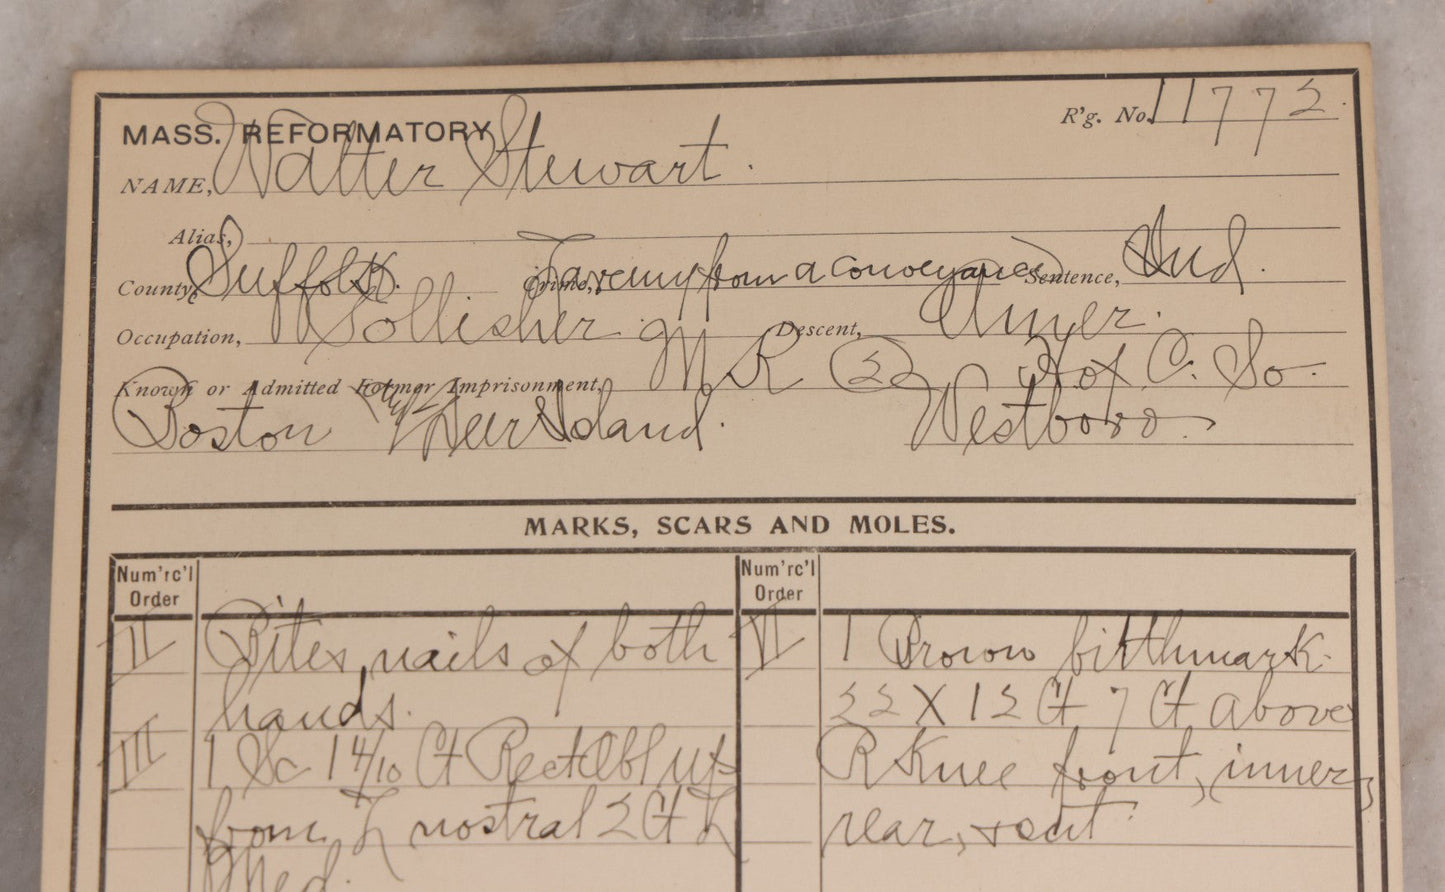 MASS. REFORMATORY R'g. No. 11772.
NAME, Walter Stewart.
Alias,
County, Suffolk. Crime, Larceny from a Conveyance Sentence, Ind.
Occupation, Pollisher. Descent, Amer.
Known or Admitted Former Imprisonment, M R (22) H. of C. So.
Boston Deer Island. Westboro.
MARKS, SCARS AND MOLES.
Num'rc'l Order
Num'rc'l Order
II Bites, nails of both
hands.
III 1 Sc 1 4/10 Ct Rect Obl up
from L nostral 2 Ct L
Med.
VI 1 Brown birthmark.
22 X 12 Ct 7 Ct above
R Knee front, inner,
rear, + out.